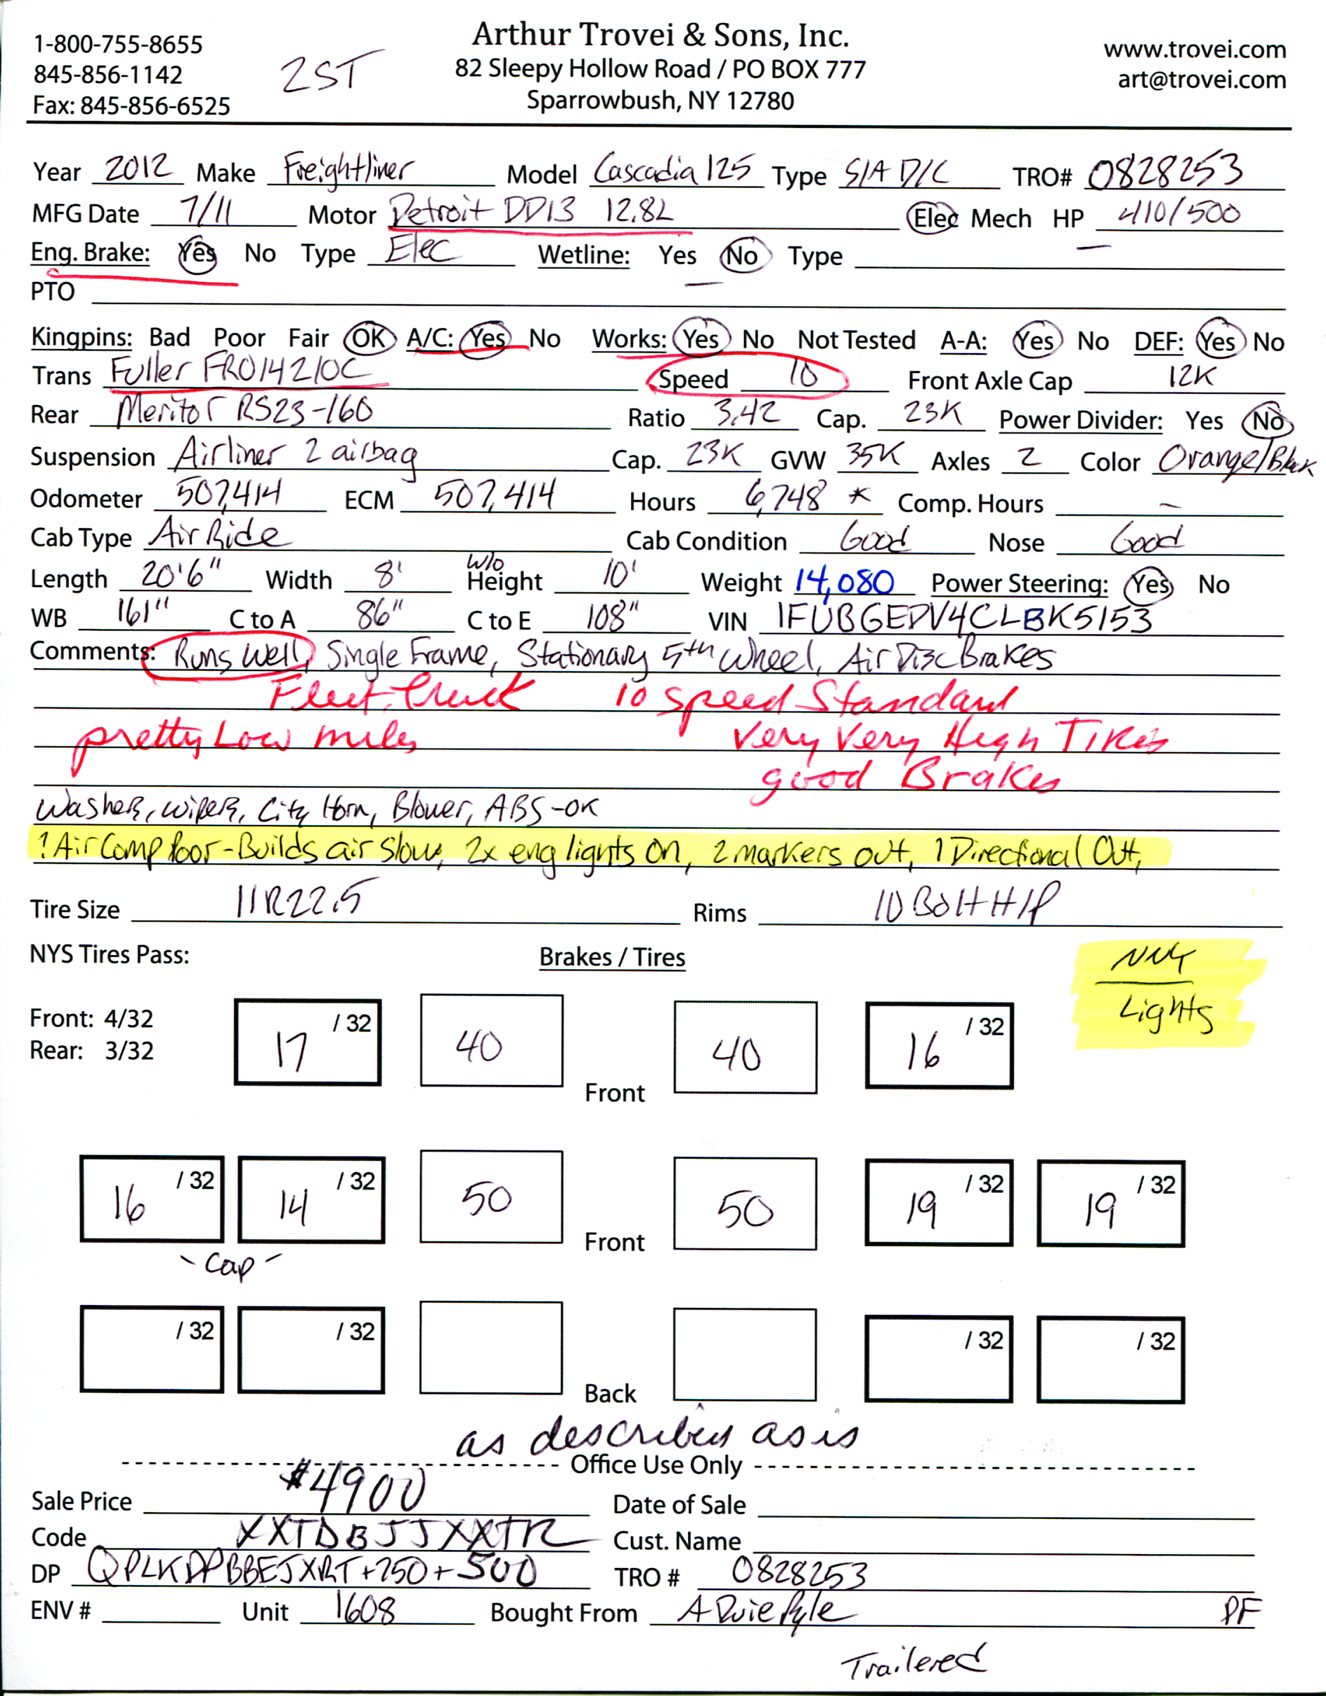 Arthur Trovei & Sons, Inc.
1-800-755-8655
845-856-1142
Fax: 845-856-6525
2ST
82 Sleepy Hollow Road / PO BOX 777
Sparrowbush, NY 12780
www.trovei.com
art@trovei.com
Year 2012 Make Freightliner Model Cascadia 125 Type S/A D/C TRO# 0828253
MFG Date 7/11 Motor Detroit DD13 12.8L Elec Mech HP 410/500
Eng. Brake: Yes No Type Elec Wetline: Yes No Type
PTO
Kingpins: Bad Poor Fair OK A/C: Yes No Works: Yes No Not Tested A-A: Yes No DEF: Yes No
Trans Fuller FRO14210C Speed 10 Front Axle Cap 12K
Rear Meritor RS23-160 Ratio 3.42 Cap. 23K Power Divider: Yes No
Suspension Airliner 2 airbag Cap. 23K GVW 35K Axles 2 Color Orange/Black
Odometer 507,414 ECM 507,414 Hours 6,748 * Comp. Hours —
Cab Type Air Ride Cab Condition Good Nose Good
Length 20'6" Width 8' w/o Height 10' Weight 14,080 Power Steering: Yes No
WB 161" C to A 86" C to E 108" VIN 1FUBGEDV4CLBK5153
Comments: Runs Well, Single Frame, Stationary 5th Wheel, Air Disc Brakes
Fleet Truck 10 speed Standard
pretty Low miles Very Very High Tires
good Brakes
Washer, wipers, City Horn, Blower, ABS-OK
! Air Comp Poor-Builds air slow, 2x eng lights on, 2 markers out, 1 Directional Out,
Tire Size 11R22.5 Rims 10 Bolt H/P
NYS Tires Pass: Brakes / Tires
Lights
Front: 4/32
Rear: 3/32
17 /32 40 Front 40 16 /32
16 /32 14 /32 50 Front 50 19 /32 19 /32
- Cap -
/32 /32 Back /32 /32
as described as is
Office Use Only
Sale Price $4900 Date of Sale
Code XXTDBJJXXTR Cust. Name
DP QPLKDPBBEJXRT+250+500 TRO # 0828253
ENV # Unit 1608 Bought From A Duie Pyle PF
Trailered